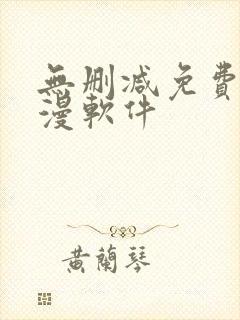 無删减免費
漫軟件
黃蘭琴